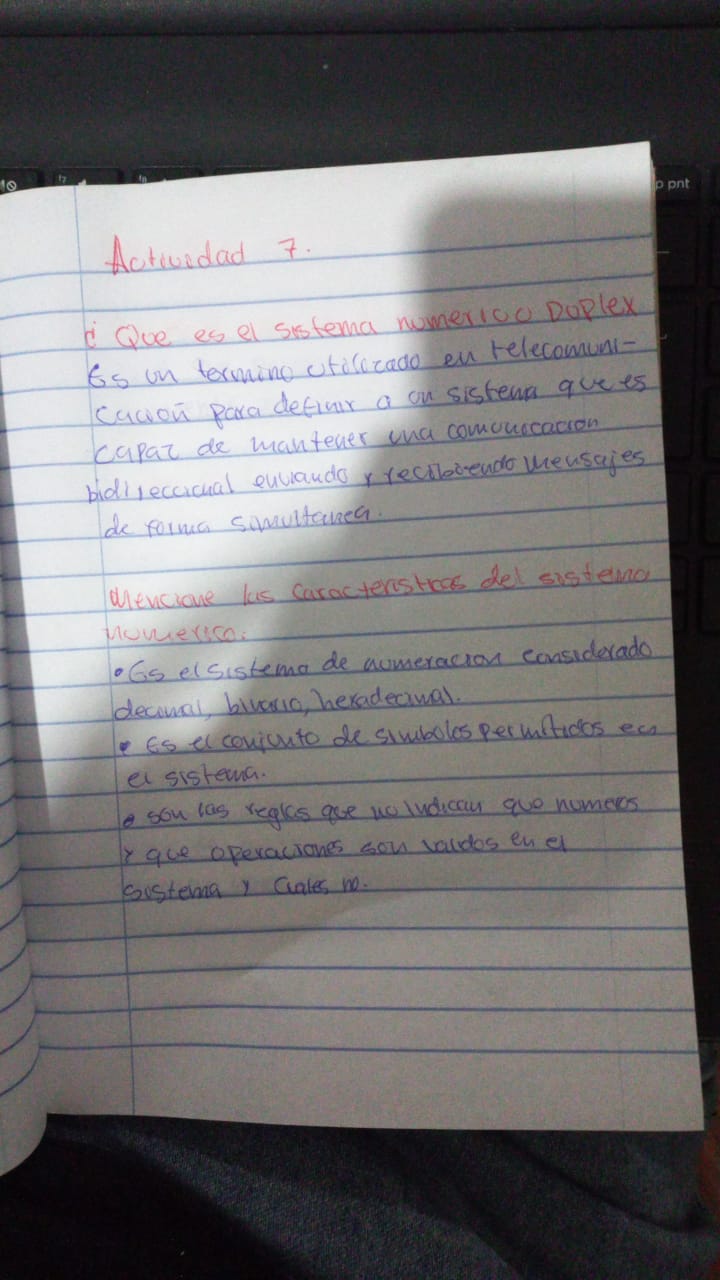 Actividad 7.
¿ Que es el sistema numerico Duplex
Es un termino utilizado en telecomuni-
cación para definir a un sistema que es
capaz de mantener una comunicacion
bidireccional enviando y recibiendo mensajes
de forma simultanea.
Mencione las caracteristicas del sistema
numerico.
• Es el sistema de numeracion considerado
decimal, binario, hexadecimal.
• Es el conjunto de simbolos permitidos en
el sistema.
• son las reglas que no indican que numeros
y que operaciones son validos en el
sistema y cuales no.
p pnt
f7
f8